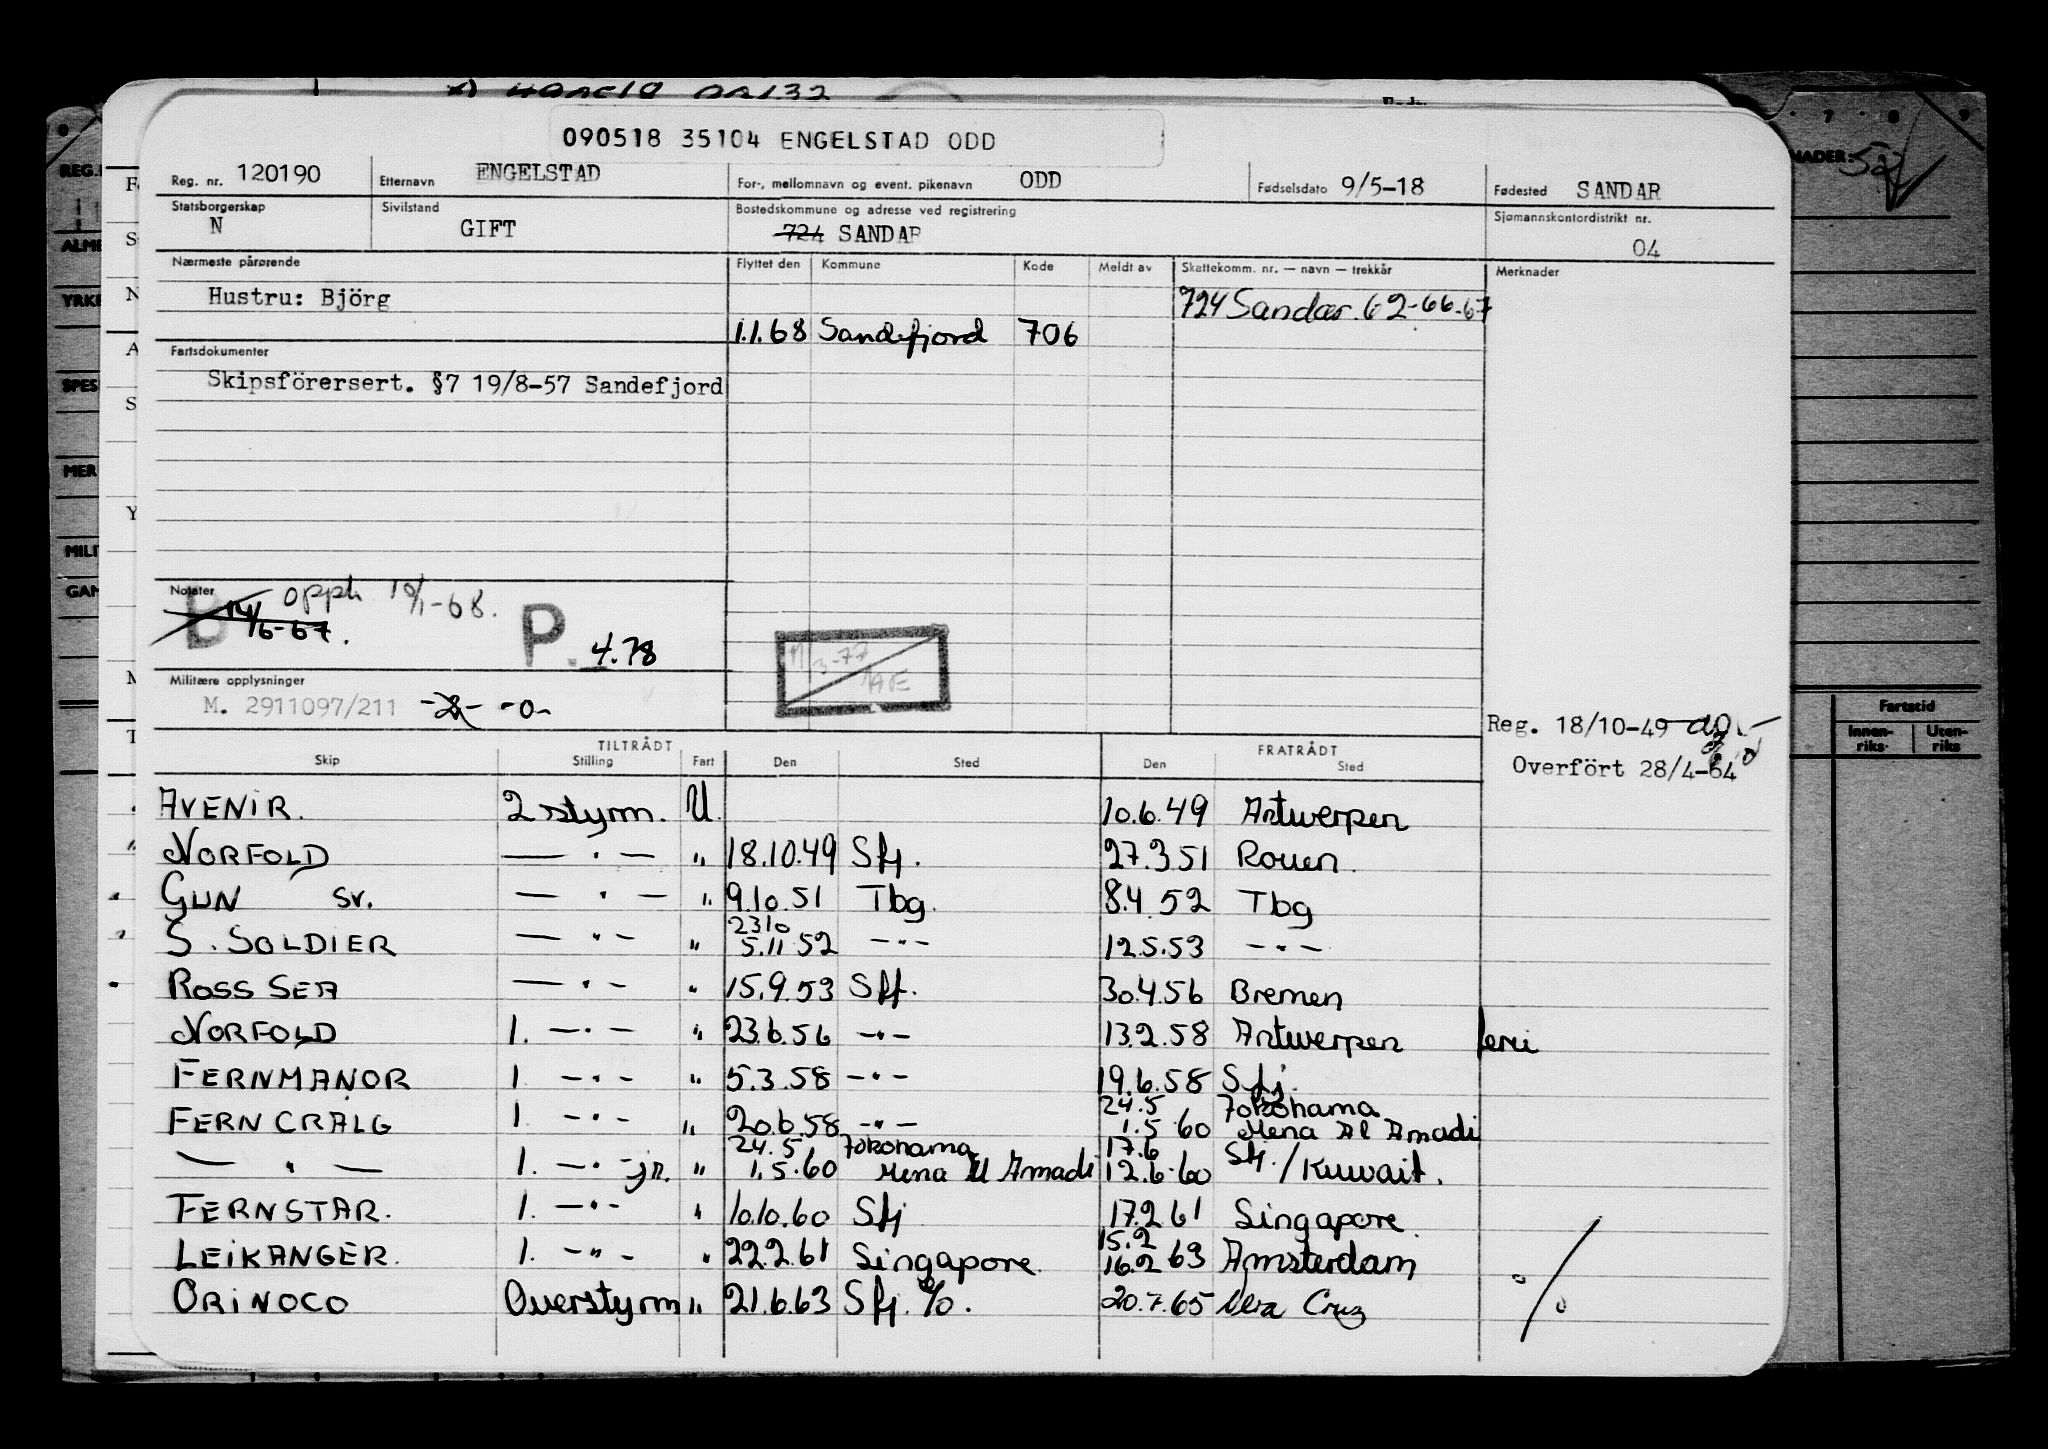 090518 35104 ENGELSTAD ODD
Reg. nr. 120190 Etternavn ENGELSTAD For-, mellomnavn og event. pikenavn ODD Fødselsdato 9/5-18 Fødested SANDAR
Statsborgerskap N Sivilstand GIFT Bostedskommune og adresse ved registrering 724 SANDAR Sjømannskontordistrikt nr. 04
Nærmeste pårørende Flyttet den Kommune Kode Meldt av Skattekomm. nr. — navn — trekkår Merknader
Hustru: Björg 724 Sandar. 62-66-67
1.1.68 Sandefjord 706
Fartsdokumenter
Skipsförersert. §7 19/8-57 Sandefjord
Notater
B 14/6-67. opph 10/1-68. P. 4.78
3-77
Militære opplysninger
M. 2911097/211 -0-
Reg. 18/10-49
Overfört 28/4-64
TILTRÅDT FRATRÅDT
Skip Stilling Fart Den Sted Den Sted
AVENIR. 2 styrm. U. 10.6.49 Antwerpen
NORFOLD — · — " 18.10.49 Sfj. 27.3.51 Rouen.
GUN sv. — · — " 9.10.51 Tbg. 8.4.52 Tbg
S. SOLDIER — " — " 2310 5.11.52 — " — 12.5.53 — " —
ROSS SEA — · — " 15.9.53 Sfj. 30.4.56 Bremen
NORFOLD 1. — · — " 23.6.56 — " — 13.2.58 Antwerpen
FERNMANOR 1 — · — " 5.3.58 — " — 19.6.58 Sfj.
FERNCRAIG 1. — · — " 20.6.58 — " — 24.5 1.5.60 Yokohama Mena Al Amadi
— " — 1. — · — jr. " 24.5 1.5.60 Yokohama Mena Al Amadi 17.6 12.6.60 Sfj./Kuwait.
FERNSTAR. 1. — · — " 10.10.60 Sfj 17.2.61 Singapore
LEIKANGER. 1. — " — " 22.2.61 Singapore. 15.2 16.2.63 Amsterdam
ORINOCO Overstyrm " 21.6.63 Sfj. %. 20.7.65 Vera Cruz
REG.
ALME
YRKE
SPES
MER
MILI
GAN
NADER: 52
7 · 8 9
Fartstid
Innen-riks Uten-riks